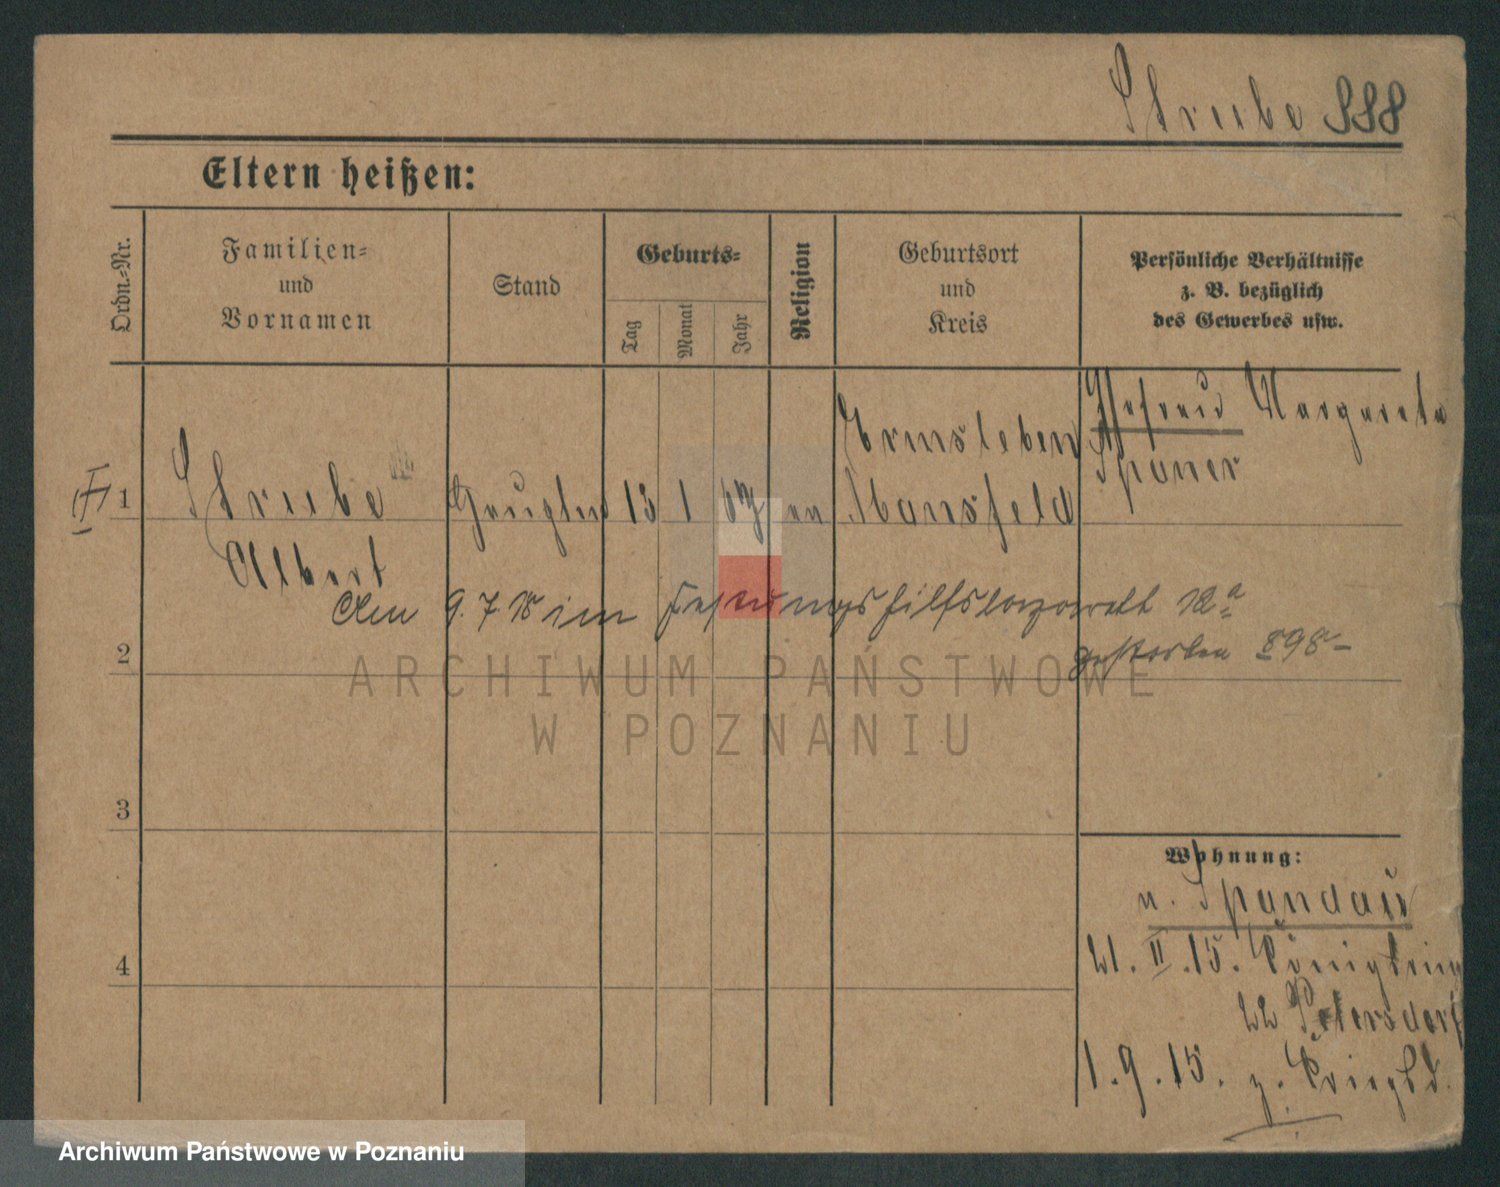 Strube 888
Eltern heißen:
Ordn.-Nr.
Familien-
und
Vornamen
Stand
Geburts-
Tag
Monat
Jahr
Religion
Geburtsort
und
Kreis
Persönliche Verhältnisse
z. B. bezüglich
des Gewerbes usw.
1
Strube
Albert
13 1 67 ev
Ermsleben
Mansfeld
Ehefrau Margarete
Spaner
Am 9.7.18 im Festungshilfslazarett 12a
gestorben 898-
2
3
4
Wohnung:
n. Spandau
21. II. 15. Königsring
22 Petersdorf
1.9.15. z.
ARCHIWUM PAŃSTWOWE
W POZNANIU
Archiwum Państwowe w Poznaniu